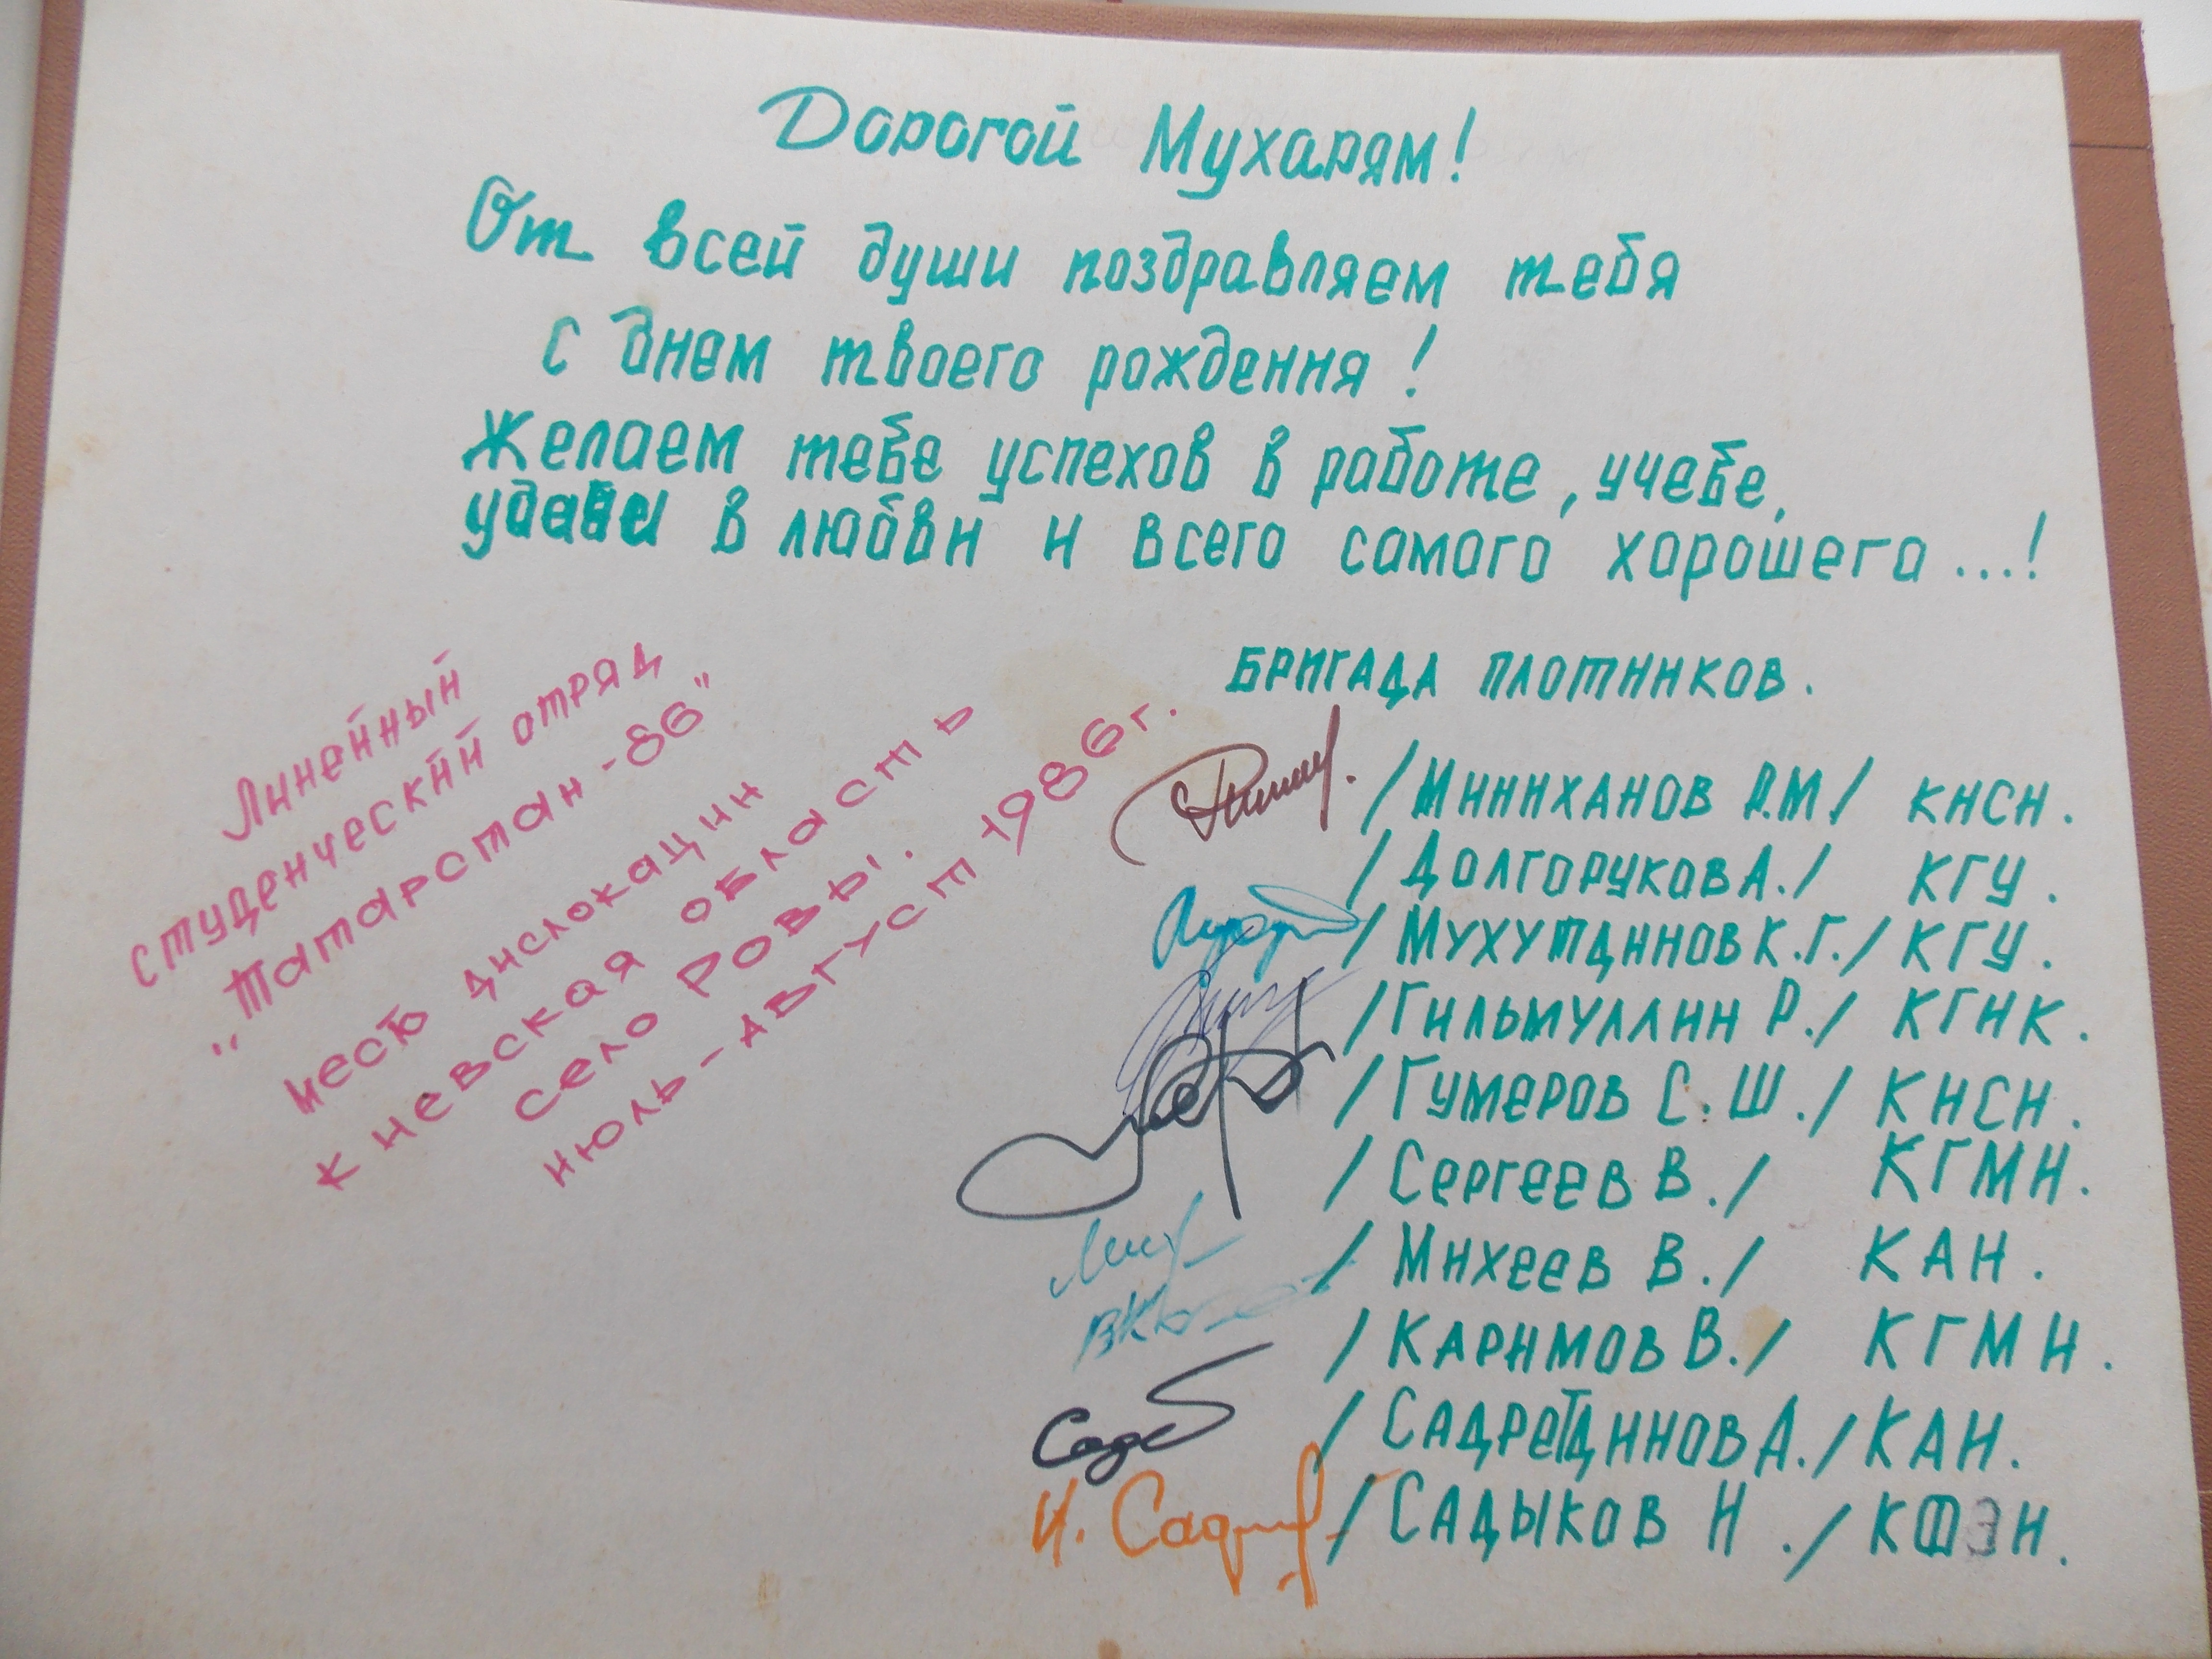 Дорогой Мухарям!
От всей души поздравляем тебя
с днем твоего рождения!
Желаем тебе успехов в работе, учебе,
удачи в любви и всего самого хорошего...!
БРИГАДА ПЛОТНИКОВ.
Линейный
студенческий отряд
"Татарстан-86"
место дислокации
Киевская область
село Ровы.
июль-август 1986г.
/МИННХАНОВ Р.М/ КИСИ.
/ДОЛГОРУКОВ А./ КГУ.
/МУХУТДИНОВ К.Г./ КГУ.
/ГИЛЬМУЛЛИН Р./ КГИК.
/ГУМЕРОВ С.Ш./ КИСИ.
/СЕРГЕЕВ В./ КГМИ.
/МИХЕЕВ В./ КАИ.
/КАРИМОВ В./ КГМИ.
/САДРЕТДИНОВ А./ КАИ.
И. /САДЫКОВ И./ КФЭИ.